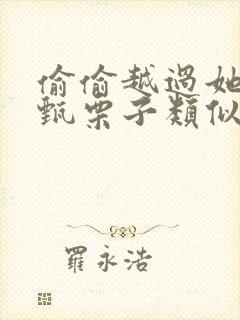 偷偷越過她
甄栗子類似
羅永浩